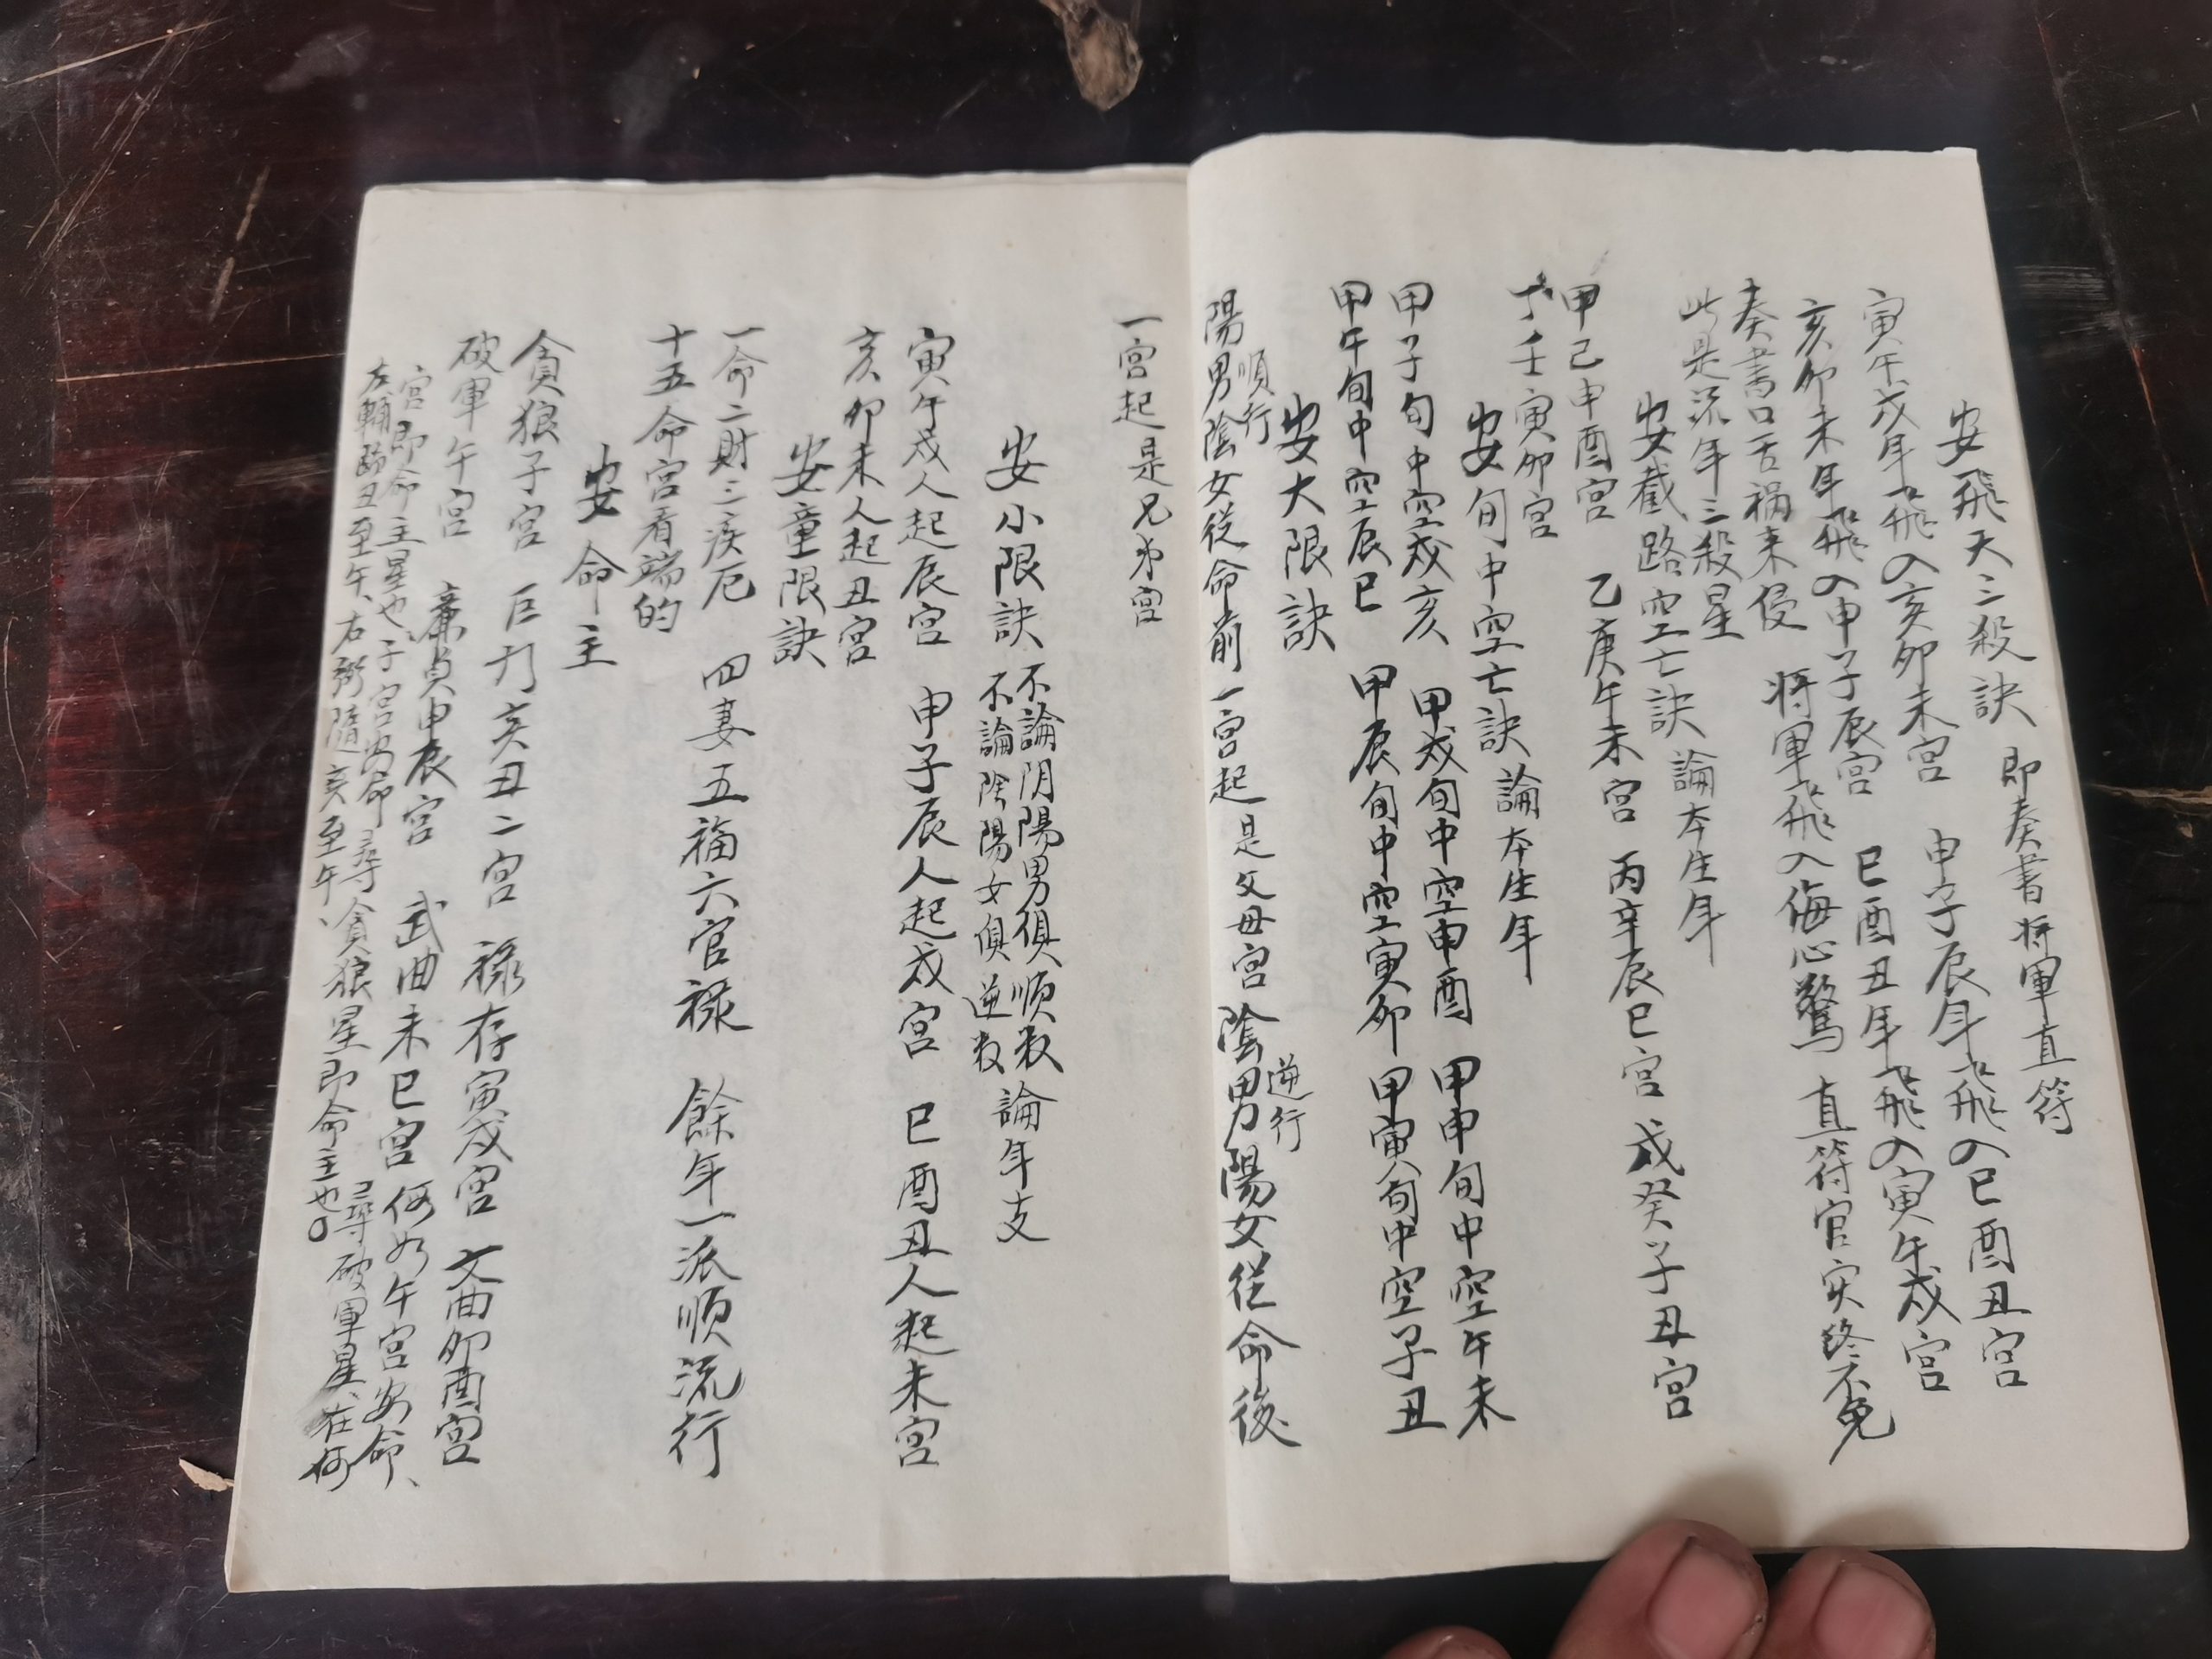 安飛天三殺訣 即奏書將軍直符
寅午戌年飛入亥卯未宮 申子辰年飛入巳酉丑宮
亥卯未年飛入申子辰宮 巳酉丑年飛入寅午戌宮
奏書口舌禍来侵 将軍飛入悔心驚 直符官灾终不免
此是流年三殺星
安截路空亡訣 論本生年
甲己申酉宮 乙庚午未宮 丙辛辰巳宮 戊癸子丑宮
丁壬寅卯宮
安旬中空亡訣 論本生年
甲子旬中空戌亥 甲戌旬中空申酉 甲申旬中空午未
甲午旬中空辰巳 甲辰旬中空寅卯 甲寅旬中空子丑
安大限訣
順行
逆行
陽男陰女従命前一宮起是父母宮 陰男陽女従命後
一宮起是兄弟宮
安小限訣 不論阴陽男俱順数 論年支
不論陰陽女俱逆数
寅午戌人起辰宮 申子辰人起戌宮 巳酉丑人起未宮
亥卯未人起丑宮
安童限訣
一命二財三疾厄 四妻五福六官禄 餘年一派順流行
十五命宮看端的
安命主
貪狼子宮 巨门亥丑二宮 禄存寅戌宮 文曲卯酉宮
破軍午宮 廉貞申辰宮 武曲未巳宮 何如午宮安命、尋破軍星、在何
宮即命主星也、子宮安命尋貪狼星即命主也。
左輔臨丑至午、右弼隨亥至午、